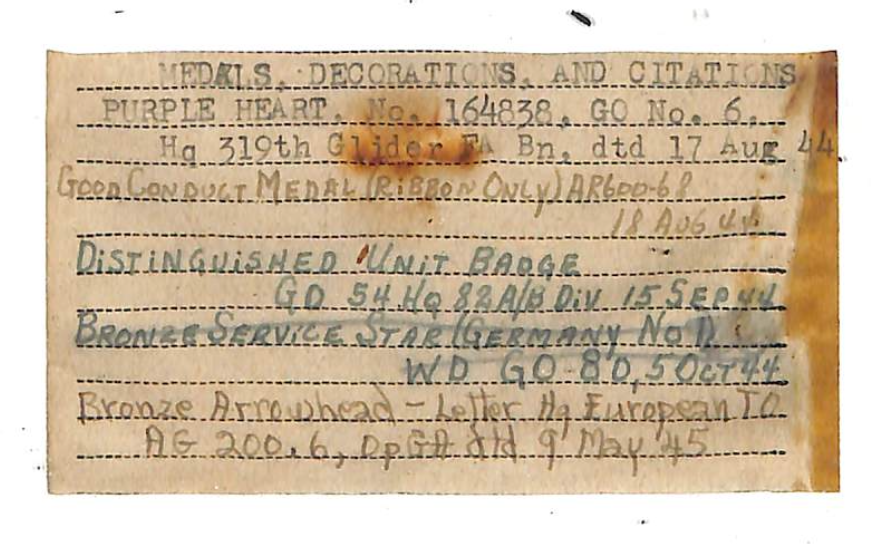 MEDALS, DECORATIONS, AND CITATIONS
PURPLE HEART, No. 164838, GO No. 6,
Hq 319th Glider FA Bn, dtd 17 Aug 44
GOOD CONDUCT MEDAL (RIBBON ONLY) AR600-68
18 AUG 44
DISTINGUISHED UNIT BADGE
GO 54 Hq 82 A/B DIV 15 SEP 44
BRONZE SERVICE STAR (GERMANY NO 1)
WD GO 80, 5 OCT 44
Bronze Arrowhead - Letter Hq European TO
AG 200.6, OpGA dtd 9 May 45